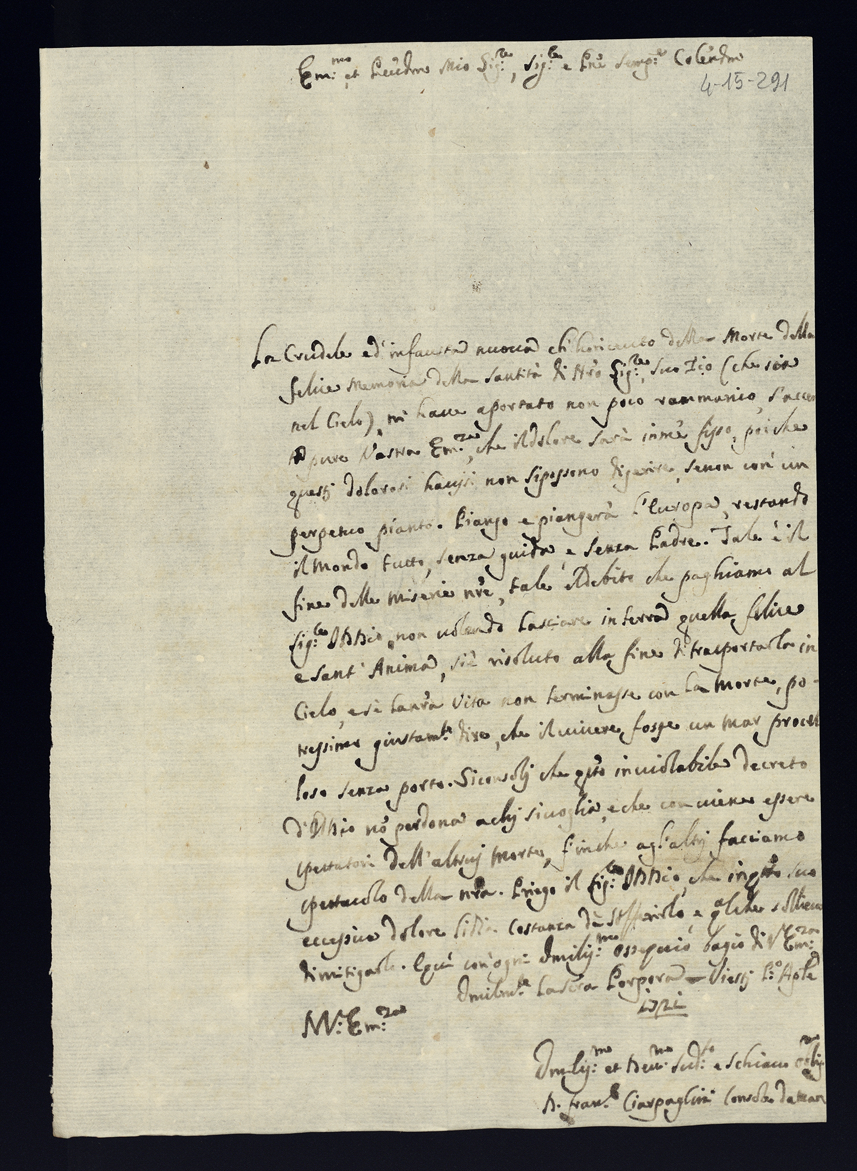 Em:mo et Reu'dmo Mio Sig:re, Sig:re e P'ne Semp:e Colendmo
4-15-291
La Crudele ed' infausta nuoua ch' hò riceuuto della Morte della
felice Memoria della Santità di N'ro Sig:re, suo Zio (che sia
nel Cielo), mi haue aportato non poco rammarico,
pure Vostra Em:za, che il dolore sarà in me fisso, poiche
questi dolorosi non si possono digerire, senon con' un
perpetuo pianto. Piange e piangerà l'Europa, restando
il Mondo tutto, senza guida e senza Padre. Tale è il
fine delle miserie n're, tale il debito che paghiamo al
Sig:re Iddio, non uolendo lasciare in terra quella felice
e sant' Anima, si è risoluto alla fine di trasportarla in
Cielo, e se la n'ra Vita non terminasse con la Morte, po-
tressimo giustam:te dire, che il uiuere fosse un mar procel
loso senza porto. Si consoli che q'sto inuiolabile decreto
d'Iddio no' perdona a chi si uoglia, e che conuiene essere
spettatori dell' altrui Morte, finche agl'altri facciamo
spettacolo della n'ra. Priego il Sig:re Iddio, che in q'sto suo
eccessiuo dolore li dia Costanza di e q'lche sollieuo
di mitigarlo. E quì con' ogni Vmiliss:mo ossequio bagio di V' Em:za
Vmilme'te la Sacra Porpora Viesti P:o Aple
1721
N V: Em:za
Vmiliss:mo et Deu:mo Seru:re e Schiauo Oblig
D. Fran:co Ciarpaglini Console